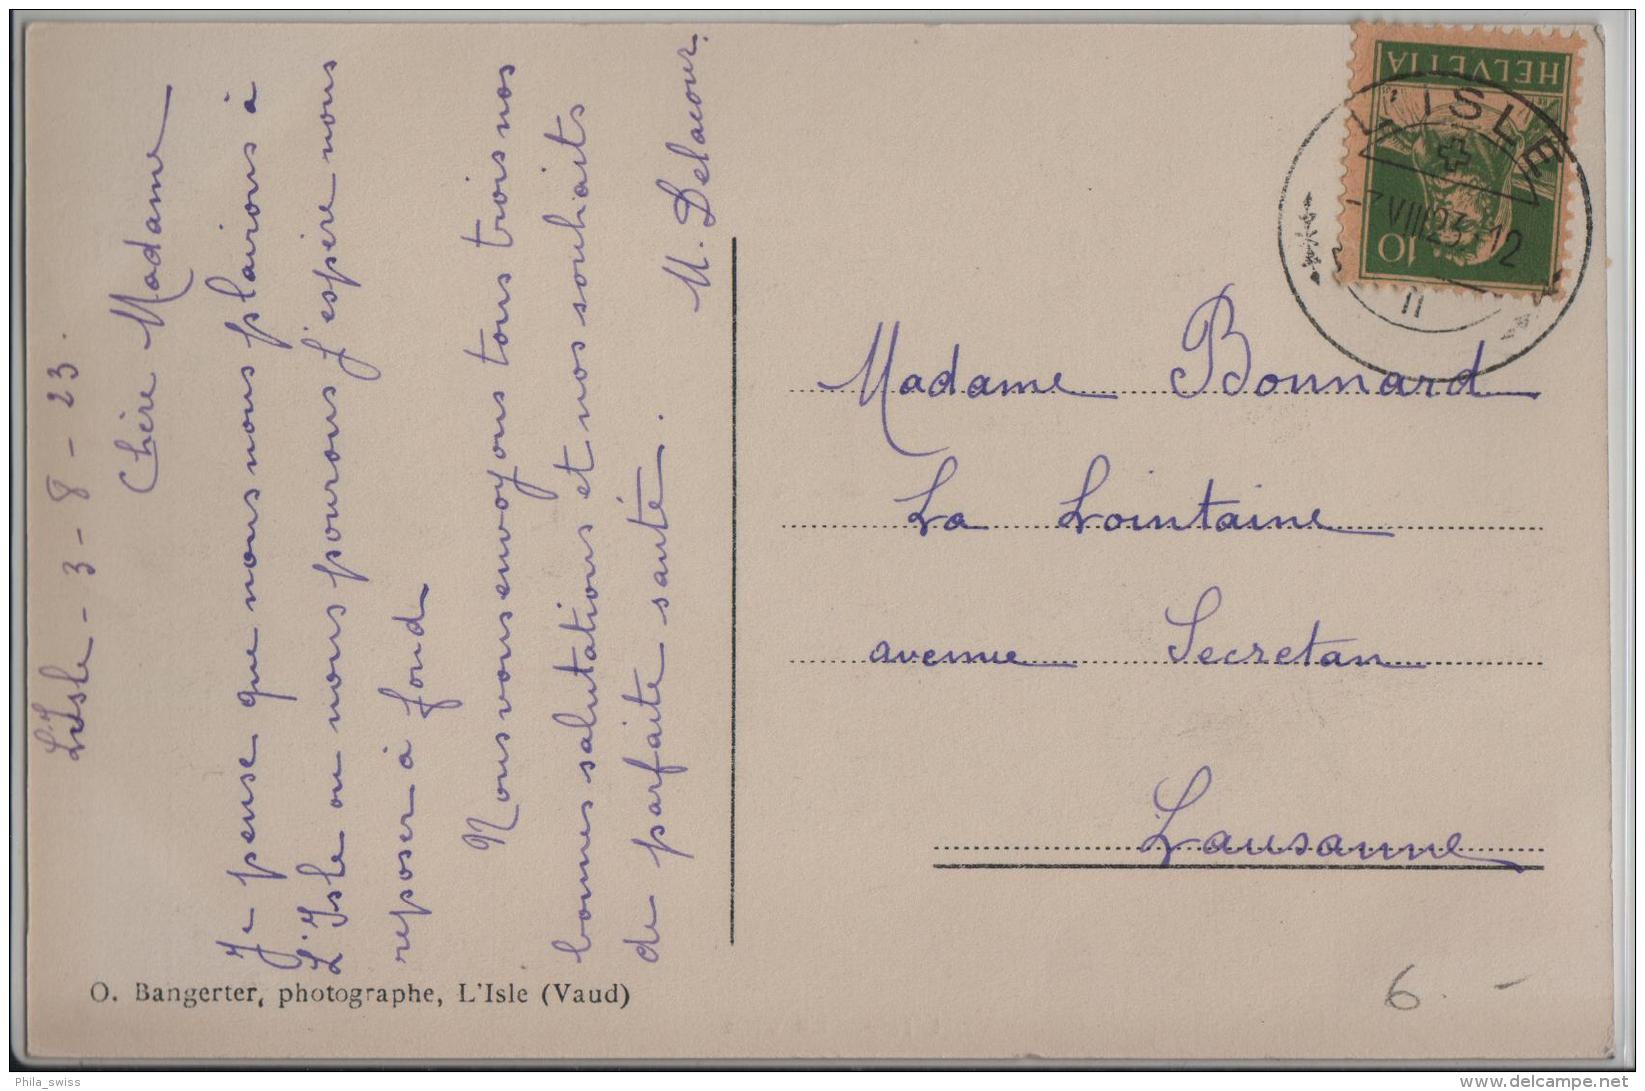 L'Isle - 3 - 8 - 23.
Chère Madame
Je pense que nous nous plairons à
L'Isle ou nous pourons j'espère nous
reposer à fond
Nous vous envoyons tous trois nos
bonnes salutations et nos souhaits
de parfaite santé.
M. Delacour.
O. Bangerter, photographe, L'Isle (Vaud)
HELVETIA
10
L'ISLE
VIII 23 12
Madame Bonnard
La Lointaine
avenue Secretan
Lausanne
6. -
Phila_swiss
delcampe.net